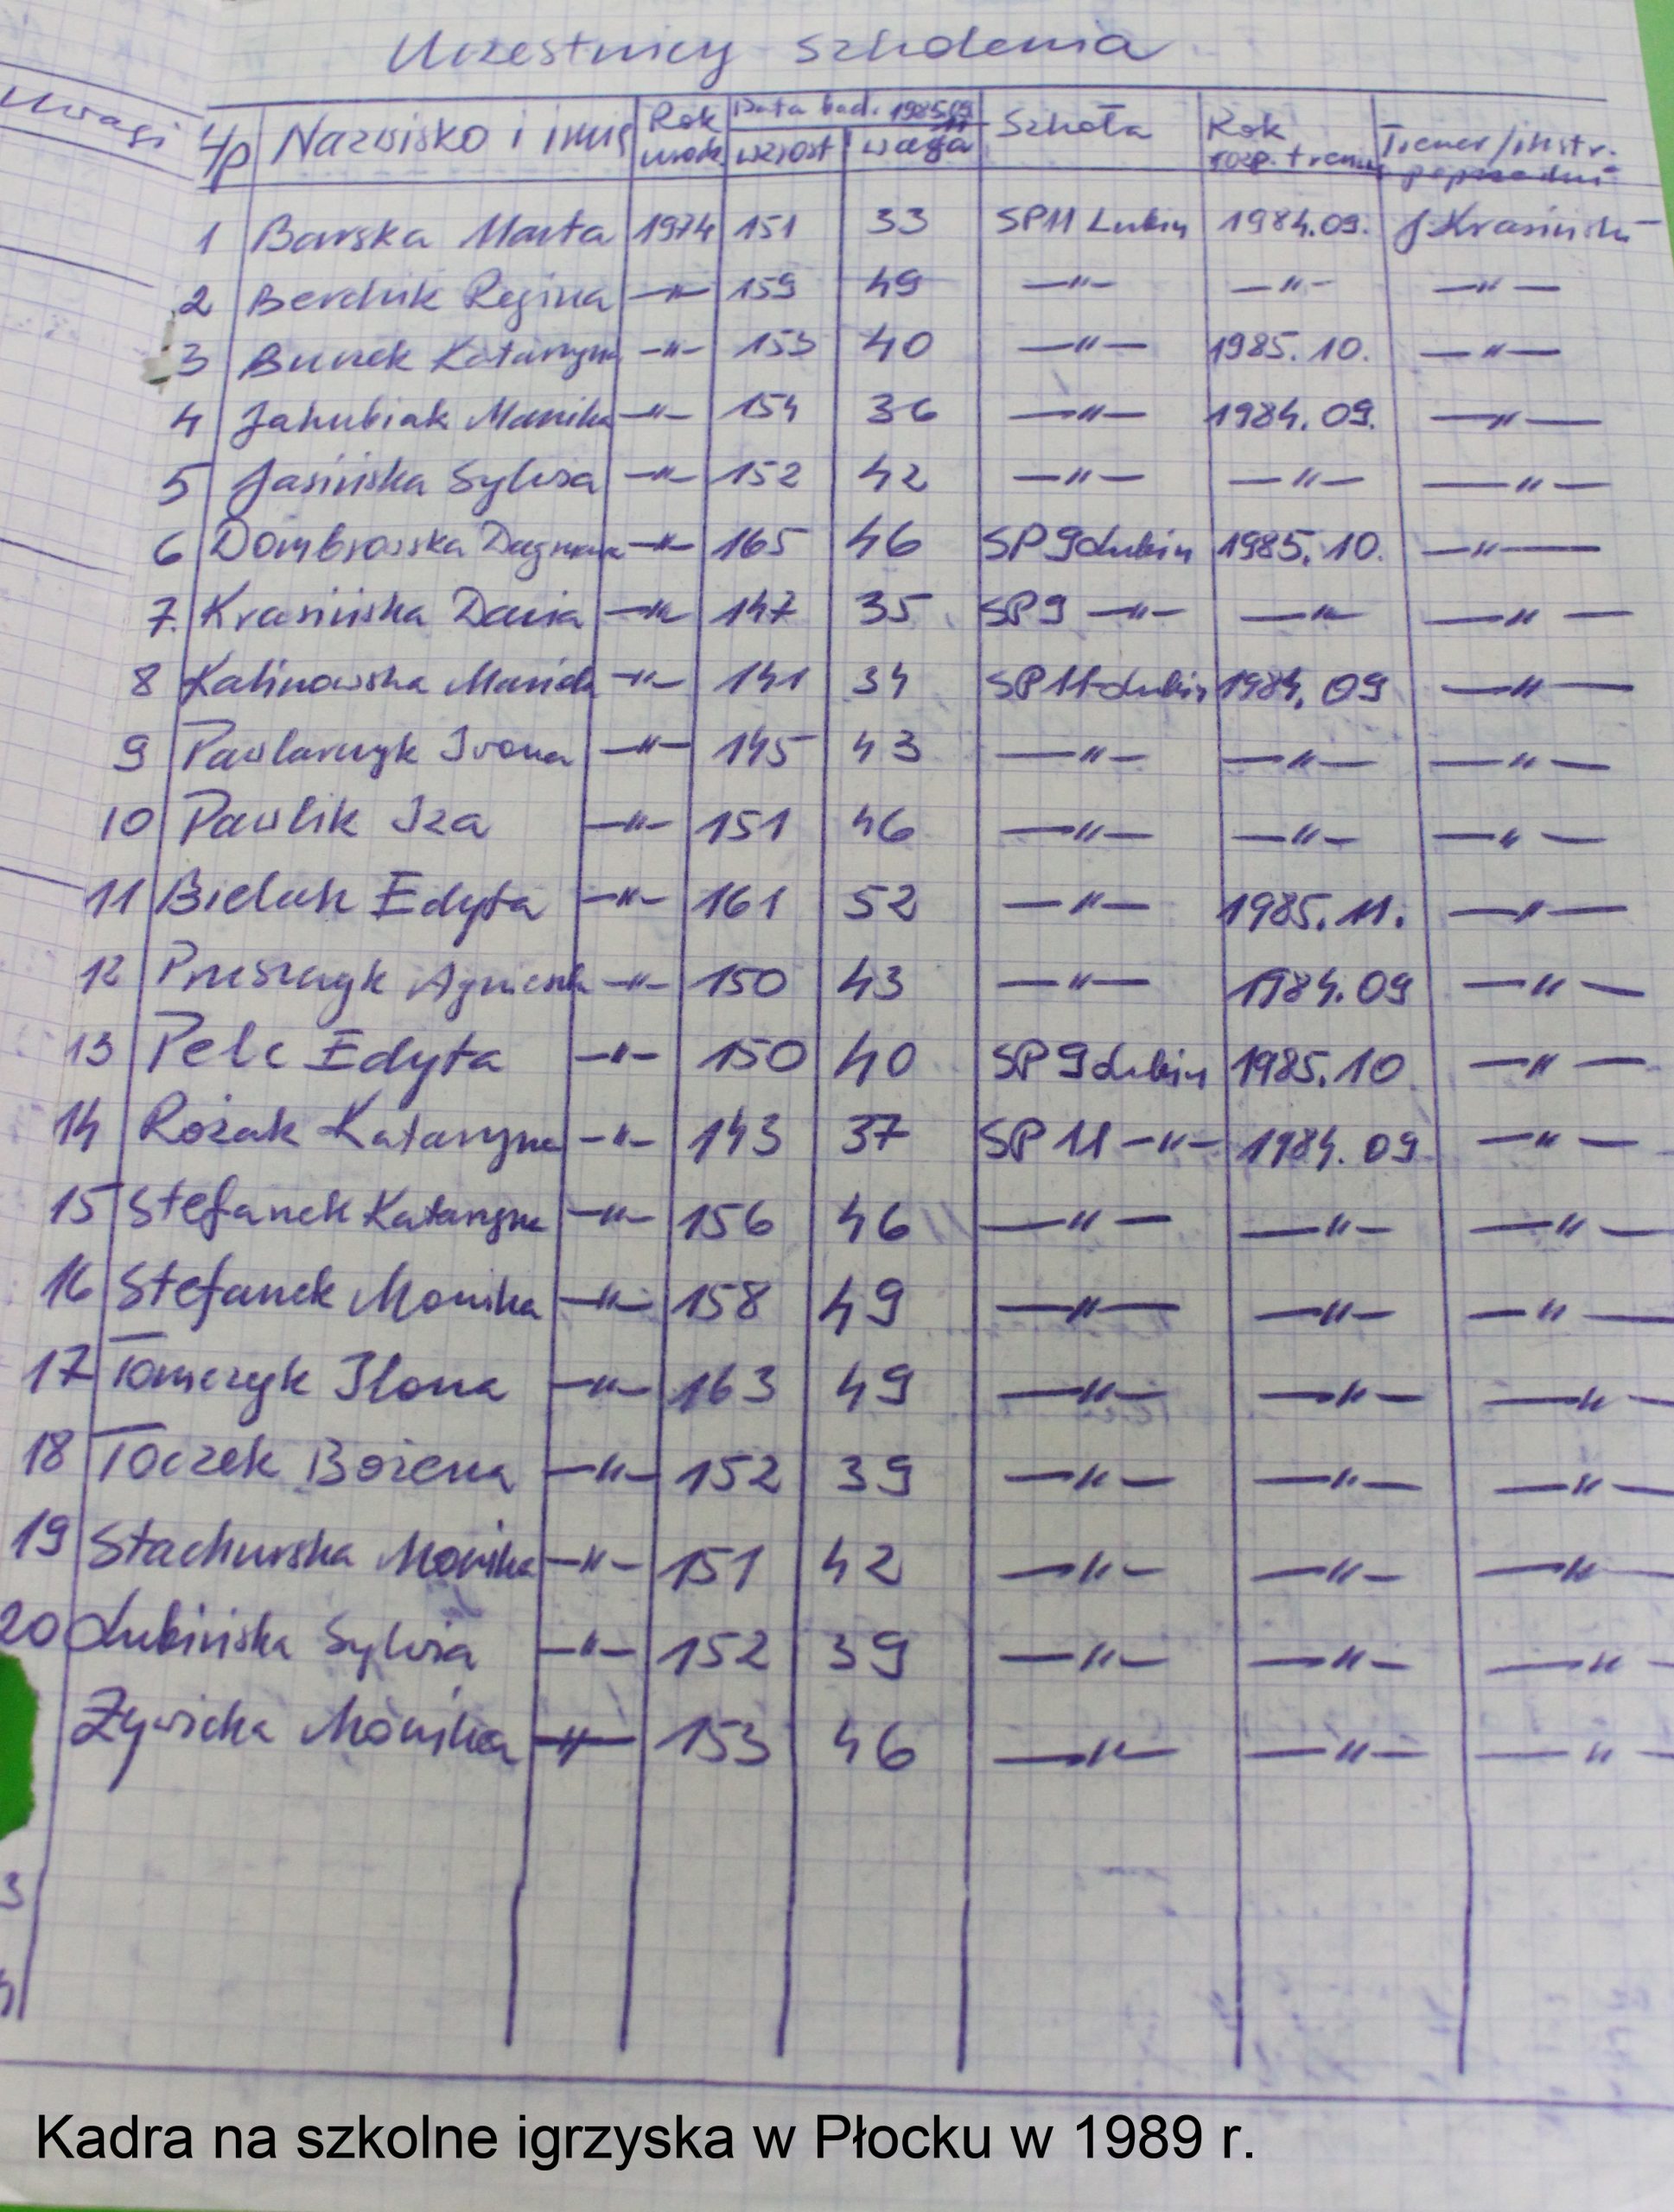 Uczestnicy szkolenia
Uwagi
L/p Nazwisko i imię Rok urodz Data bad. 1985.09 11 wzrost waga Szkoła Rok rozp. trenin Trener/instr. poprzedni
1 Barska Marta 1974 151 33 SP11 Lubin 1984.09. J.Krasiński
2 Berdnik Regina —"— 159 49 —"— —"— —"—
3 Bunek Katarzyna —"— 153 40 —"— 1985.10. —"—
4 Jakubiak Monika —"— 154 36 —"— 1984.09. —"—
5 Jasińska Sylwia —"— 152 42 —"— —"— —"—
6 Dombrowska Dagmara —"— 165 46 SP9 Lubin 1985.10. —"—
7. Krasińska Daria —"— 147 35 SP9 —"— —"— —"—
8 Kalinowska Mariola —"— 141 34 SP11 Lubin 1984.09 —"—
9 Pawlarczyk Iwona —"— 145 43 —"— —"— —"—
10 Pawlik Iza —"— 151 46 —"— —"— —"—
11 Bielak Edyta —"— 161 52 —"— 1985.11. —"—
12 Agnieszka —"— 150 43 —"— 1984.09 —"—
13 Pelc Edyta —"— 150 40 SP9 Lubin 1985.10 —"—
14 Rożak Katarzyna —"— 143 37 SP 11 —"— 1984.09 —"—
15 Stefanek Katarzyna —"— 156 46 —"— —"— —"—
16 Stefanek Monika —"— 158 49 —"— —"— —"—
17 Tomczyk Ilona —"— 163 49 —"— —"— —"—
18 Toczek Bożena —"— 152 39 —"— —"— —"—
19 Stachurska Monika —"— 151 42 —"— —"— —"—
20 Lubińska Sylwia —"— 152 39 —"— —"— —"—
Żywicka Monika —"— 153 46 —"— —"— —"—
3
Kadra na szkolne igrzyska w Płocku w 1989 r.